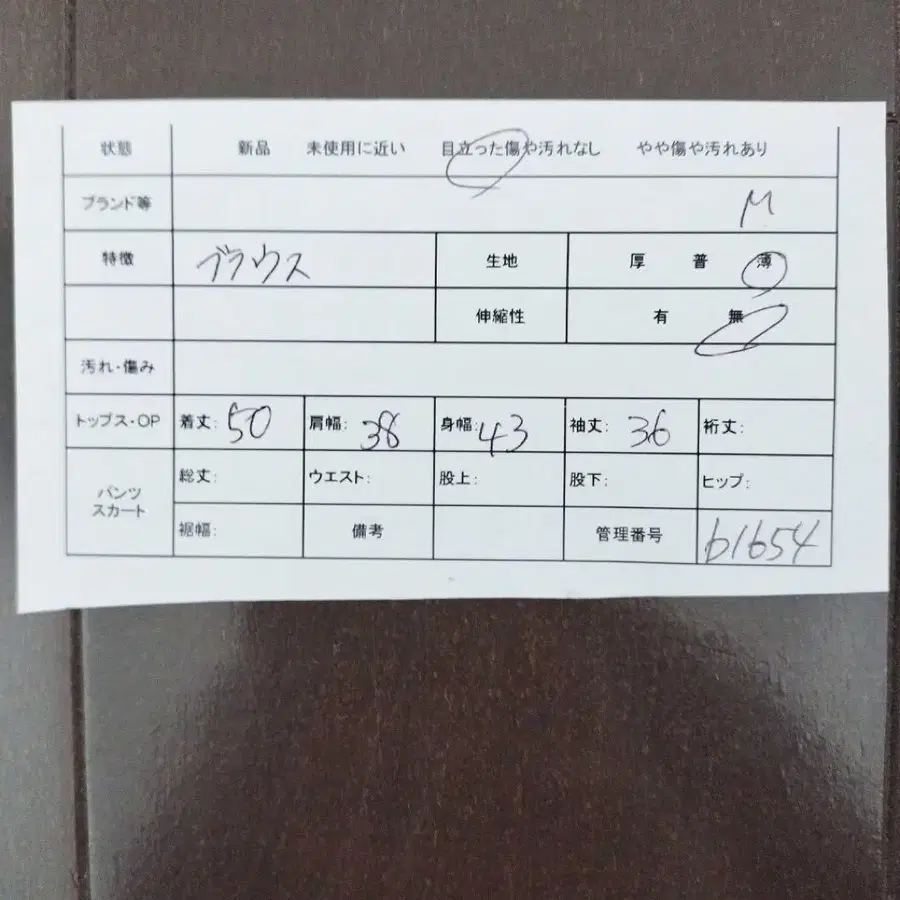 状態 新品 未使用に近い 目立った傷や汚れなし やや傷や汚れあり
ブランド等 M
特徴 ブラウス 生地 厚 普 薄
伸縮性 有 無
汚れ・傷み
トップス・OP 着丈: 50 肩幅: 38 身幅: 43 袖丈: 36 裄丈:
パンツ スカート 総丈: ウエスト: 股上: 股下: ヒップ:
裾幅: 備考 管理番号 61654